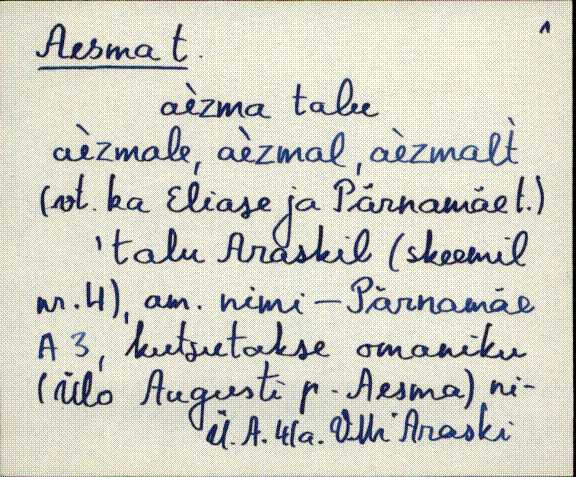 1
Aesma t.
aèzma talu
aèzmale, aèzmal, aèzmalt̀
(vt. ka Eliase ja Pärnamäe t.)
'talu Araskil (skeemil
nr. 4), am. nimi – Pärnamäe
A 3, kutsutakse omaniku
(Ülo Augusti p. Aesma) ni-
Ü. A. Araski